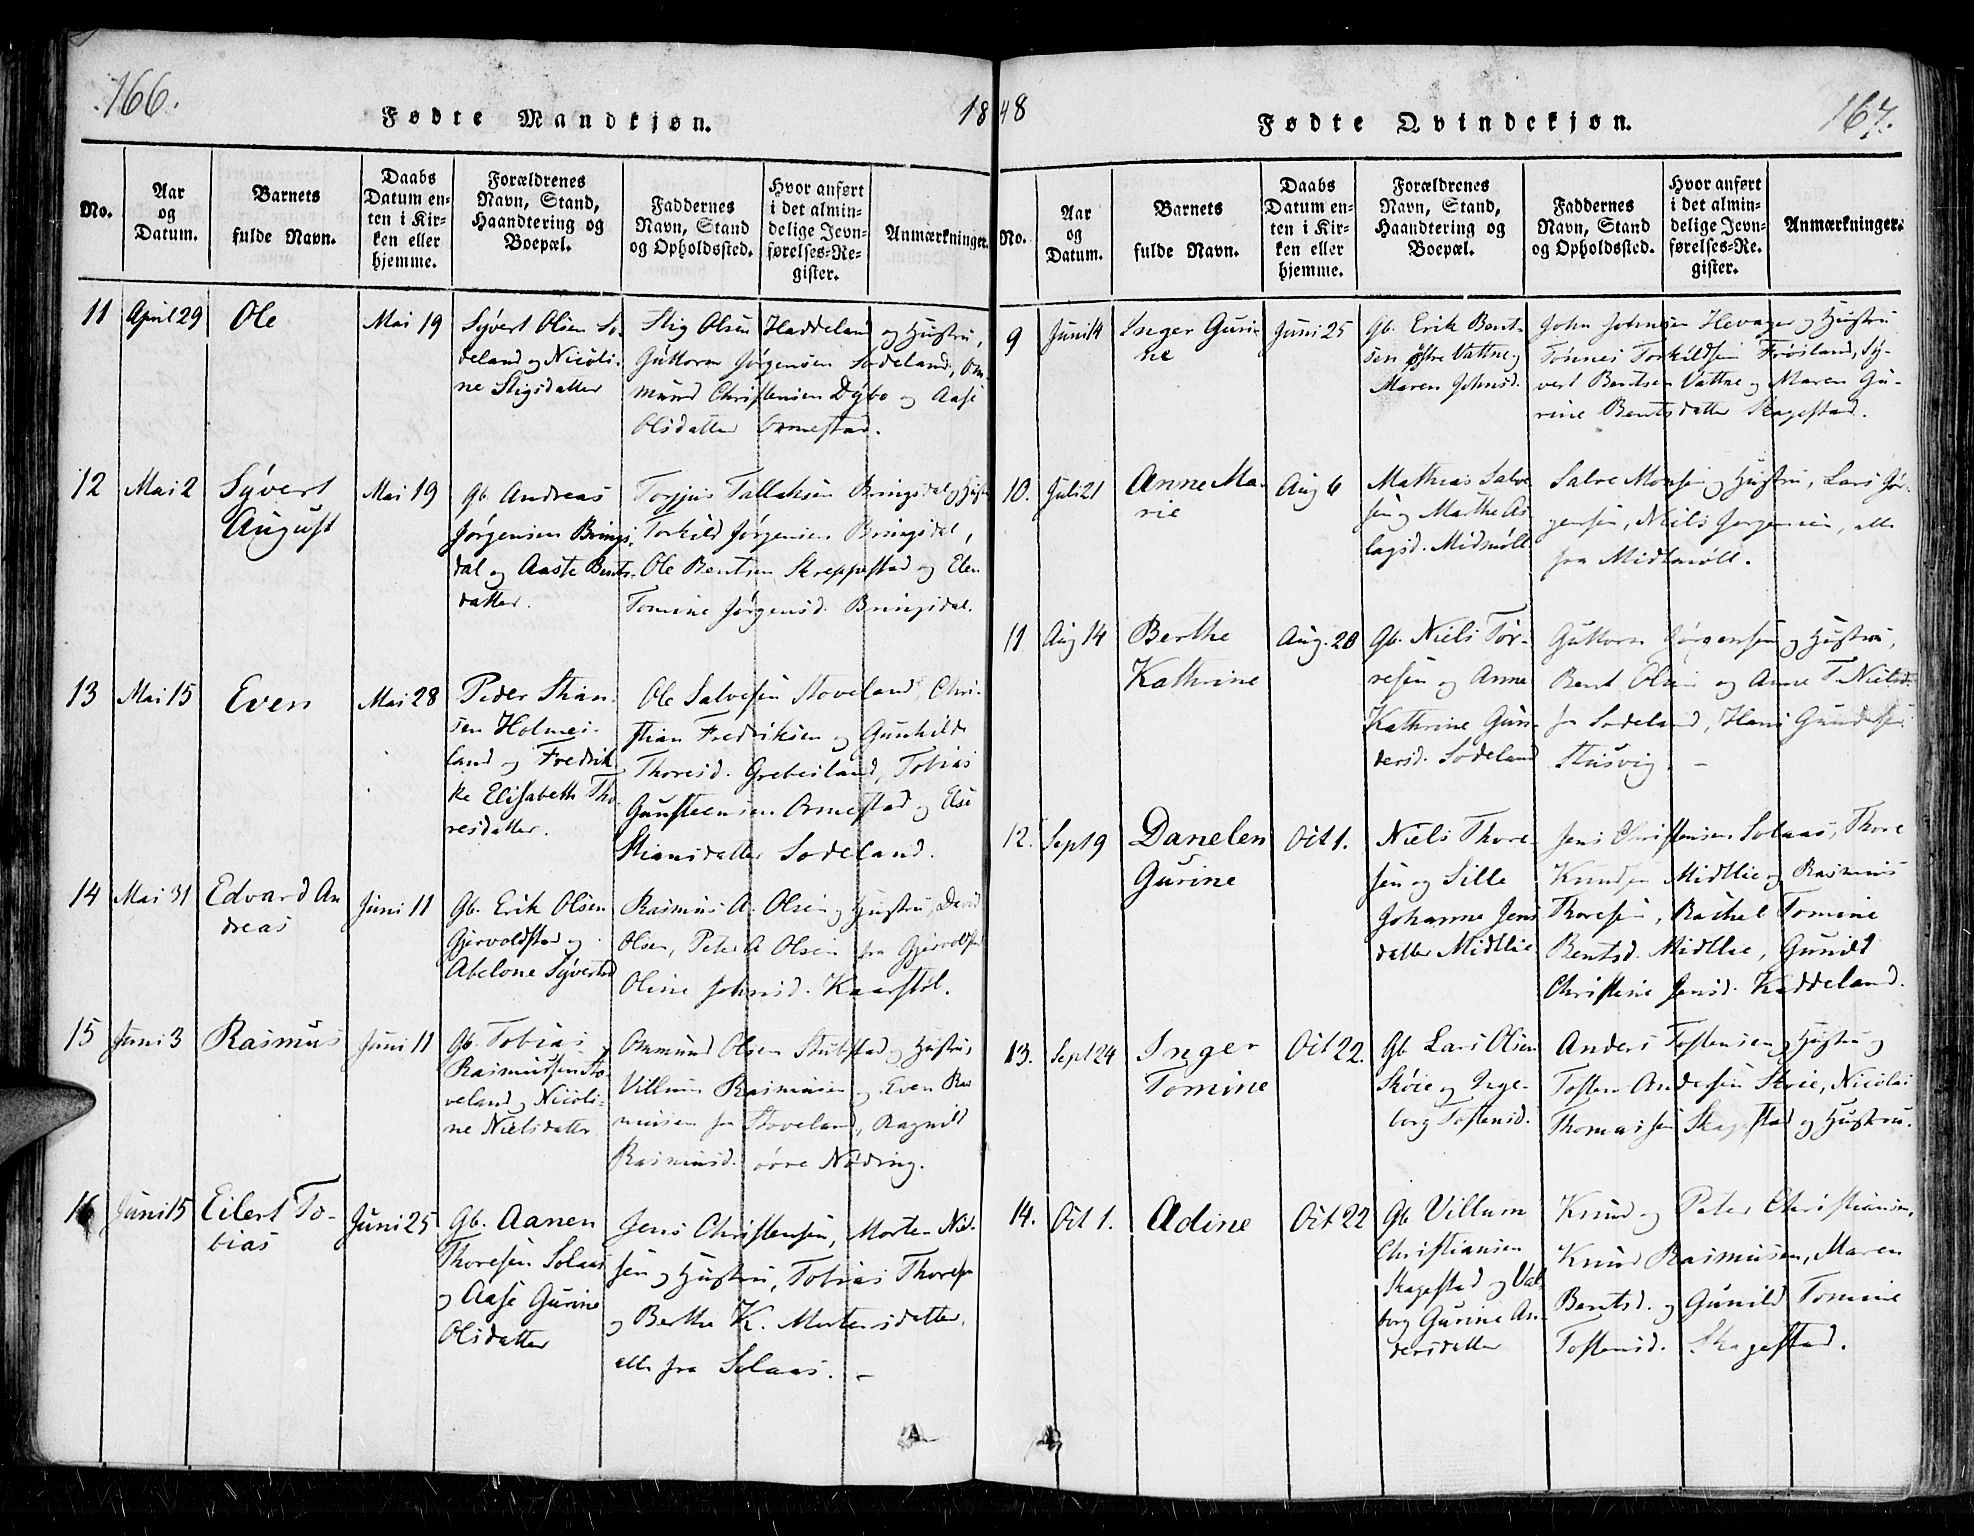 166.
18
Fødte Mandkjøn.
No.
Aar
og
Datum.
Barnets
fulde Navn.
Daabs
Datum en-
ten i Kir-
ken eller
hjemme.
Forældrenes
Navn, Stand,
Haandtering og
Boepæl.
Faddernes
Navn, Stand
og Opholdssted.
Hvor anført
i det almin-
delige Jevn-
førelses-Re-
gister.
Anmærkninger.
11
April 29
Ole
Mai 19
Syvert Olsen So-
deland og Nicoli-
ne Stigsdatter
Stig Olsen Haddeland og Hustru,
Guttorm Jørgensen Sodeland, Om-
mund Christensen Dybo og Aase
Olsdatter Ormestad.
12
Mai 2
Syvert
August
Mai 19
Gb. Andreas
Jørgensen Brings-
dal og Aaste Bents-
datter.
Torjus Tallaksen Bringsdal og Hustru
Torkild Jørgensen Bringsdal,
Ole Bentsen Skreppestad og Elen
Tomine Jørgensd. Bringsdal.
13
Mai 15
Even
Mai 28
Peder Stian-
sen Holmes-
land og Fredrik-
ke Elisabeth Tho-
resdatter.
Ole Salvesen Stoveland, Chri-
stian Fredriksen og Gunhilde
Thoresd. Grebesland, Tobias
Gunsteensen Ormestad og Else
Stiansdatter Sodeland.
14
Mai 31
Edvard An
dreas
Juni 11
Gb. Erik Olsen
Gjervoldstad og
Abelone Syvertsd
Rasmus A. Olsen og Hustru, David
Olsen, Peter A Olsen fra Gjervoldstad
Oline Johnsd. Kaarstøl.
15
Juni 3
Rasmus
Juni 11
Gb. Tobias
Rasmussen Sto-
veland og Nicoli-
ne Nielsdatter
Ommund Olsen Stubstad og Hustru,
Villum Rasmusen og Even Ras
musen fra Stoveland, Ragnild
Rasmusd. øvre Nøding.
16
Juni 15
Eilert To-
bias
Juni 25
Gb. Aanen
Thoresen Solaas
og Aase Gurine
Olsdatter
Jens Christensen, Morten Niel-
sen og Hustru, Tobias Thoresen
og Berthe K. Mortensdatter,
alle fra Solaas. –
48
167.
Fødte Qvindekjøn.
No.
Aar
og
Datum.
Barnets
fulde Navn.
Daabs
Datum en-
ten i Kir-
ken eller
hjemme.
Forældrenes
Navn, Stand,
Haandtering og
Boepæl.
Faddernes
Navn, Stand
og Opholdssted.
Hvor anført
i det almin-
delige Jevn-
førelses-Re-
gister.
Anmærkninger.
9
Juni 14
Inger Guri-
ne
Juni 25
Gb. Erik Bent-
sen østre Vattne og
Maren Johnsd.
John Johnsen Hevager og Hustru
Tønnes Torkildsen Frøisland, Sy-
vert Bentsen Vattne og Maren Gu-
rine Bentsdatter Skagestad.
10.
Juli 21
Anne Ma-
rie
Aug 6
Mathias Salve
sen og Marthe As-
lagsd. Midmøll
Salve Monsen og Hustru, Lars Jør-
gensen, Niels Jørgensen, alle
fra Midtmøll.
11
Aug 14
Berthe
Kathrine
Aug. 20
Gb. Niels Tor-
resen og Anne
Kathrine Gun-
dersd. Sodeland
Guttorm Jørgensen og Hustru,
Bent Olsen og Anne T. Nielsd.
fra Sodeland, Hans Gundersen
Stusvig. –
12.
Sept 9
Danelen
Gurine
Oct 1.
Niels Thore-
sen og Sille
Johanne Jens
datter Midtlie
Jens Christensen Solaas, Thore
Knudsen Midtlie og Rasmus
Thoresen, Rachel Tomine
Bentsd. Midtlie, Gunild
Christine Jensd. Haddeland.
13.
Sept 24
Inger
Tomine
Oct 22.
Gb Lars Olsen
Skøie og Inge-
borg Tostensd.
Anders Tostensen og Hustru og
Tosten Andersen Skøie, Nicolai
Thomassen Skagestad og Hustru.
14.
Oct 1.
Adine
Oct 22
Gb Villum
Christiansen
Skagestad og Val-
borg Gurine An-
dersdatter
Knud og Peter Christiansen,
Knud Rasmusen, Maren
Bentsd. og Gunild Tomine
Tostensd. Skagestad.